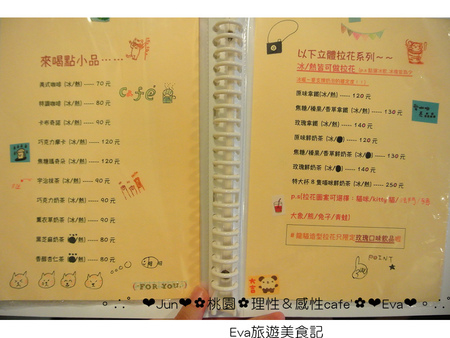 來喝點小品……
美式咖啡 (冰/熱) ---- 70 元
桃園咖啡 (冰/熱) ---- 80 元
卡布奇諾 (冰/熱) ---- 90 元
巧克力摩卡 (冰/熱) ---- 120 元
焦糖瑪奇朵 (冰/熱) ---- 120 元
宇治抹茶 (冰/熱) ---- 90 元
巧克力奶茶 (冰/熱) ---- 90 元
薰衣草奶茶 (冰/熱) ---- 90 元
黑芝麻奶茶 ---- 80 元
杏仁茶 ---- 80 元
Café
FOR YOU.
以下立體拉花系列~~
冰/熱皆可做拉花
原味拿鐵 (冰/熱) ---- 120 元
焦糖/榛果/香草拿鐵 (冰/熱) ---- 130 元
玫瑰拿鐵 (冰/熱) ---- 140 元
原味鮮奶茶 (冰/) ---- 130 元
焦糖/榛果/香草鮮奶茶 (冰/熱) ---- 140 元
玫瑰鮮奶茶 (冰/熱) ---- 140 元
特大杯 8 隻貓咪鮮奶茶 (冰/熱) ---- 250 元
p.s(拉花圖案可選擇：貓咪/kitty 貓/
大象/熊/兔子/青蛙)
＊貓貓造型拉花只限定玫瑰口味飲品喔
POINT
❤Jun❤✿桃園✿理性＆感性cafe'✿❤Eva❤
Eva旅遊美食記